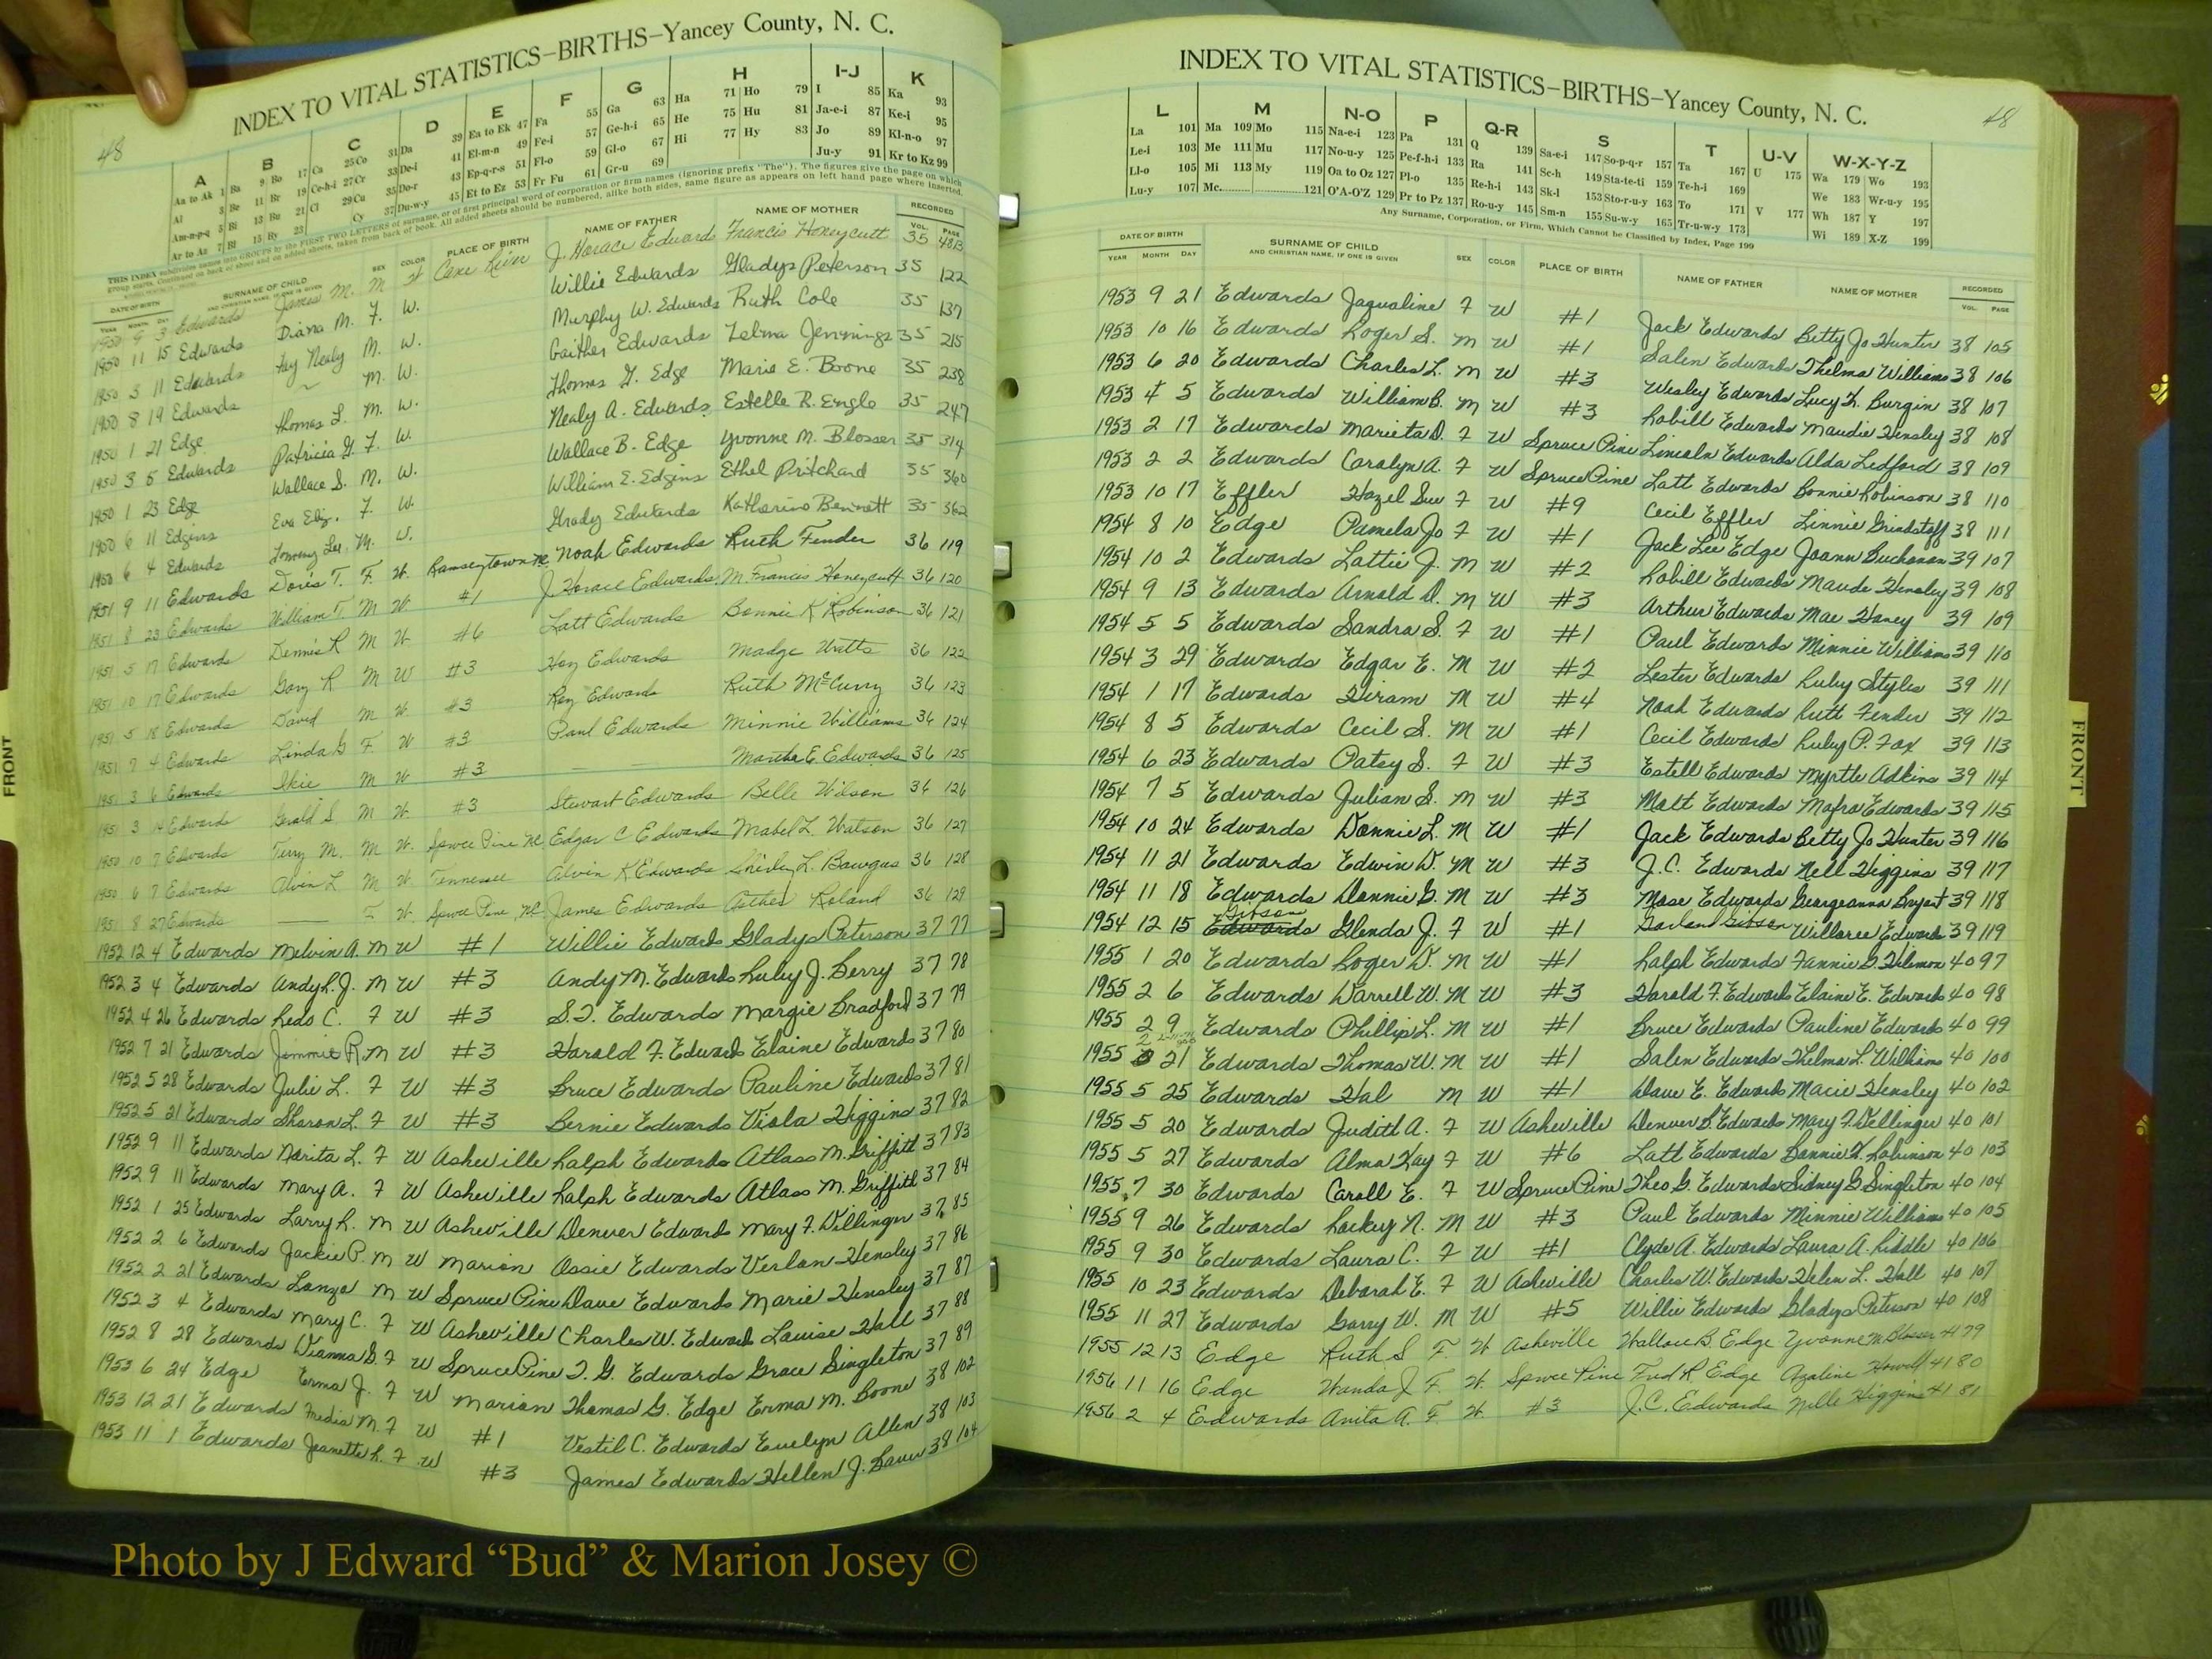 48
INDEX TO VITAL STATISTICS—BIRTHS—Yancey County, N. C.
A B C D E F G H I-J K
Aa to Ak 1 Ba 9 Bo 17 Ca 25 Co 31 Da 39 Ea to Ek 47 Fa 55 Ga 63 Ha 71 Ho 79 I 85 Ka 93
Al 3 Be 11 Br 19 Ce-h-i 27 Cr 33 De-i 41 El-m-n 49 Fe-i 57 Ge-h-i 65 He 75 Hu 81 Ja-e-i 87 Ke-i 95
Am-n-p-q 5 Bi 13 Bu 21 Cl 29 Cu 35 Do-r 43 Ep-q-r-s 51 Fl-o 59 Gl-o 67 Hi 77 Hy 83 Jo 89 Kl-n-o 97
Ar to Az 7 Bl 15 By 23 Cy 37 Du-w-y 45 Et to Ez 53 Fr Fu 61 Gr-u 69 Ju-y 91 Kr to Kz 99
THIS INDEX subdivides names into GROUPS by the FIRST TWO LETTERS of surname, or of first principal word of corporation or firm names (ignoring prefix "The"). The figures give the page on which
group starts. Continued on back of sheet and on added sheets, taken from back of book. All added sheets should be numbered, alike both sides, same figure as appears on left hand page where inserted.
DATE OF BIRTH SURNAME OF CHILD SEX COLOR PLACE OF BIRTH NAME OF FATHER NAME OF MOTHER RECORDED
YEAR MONTH DAY AND CHRISTIAN NAME, IF ONE IS GIVEN VOL. PAGE
1950 9 3 Edwards James M. M Cane River J. Horace Edwards Francis Honeycutt 35
1950 11 15 Edwards Diana M. F. W. Willie Edwards Gladys Peterson 35 122
1950 3 11 Edwards Fay Nealy M. W. Murphy W. Edwards Ruth Cole 35 137
1950 8 19 Edwards — M. W. Gaither Edwards Zelma Jennings 35 215
1950 1 21 Edge Thomas L. M. W. Thomas G. Edge Marie E. Boone 35 238
1950 3 5 Edwards Patricia G. F. W. Nealy A. Edwards Estelle R. Engle 35 247
1950 1 23 Edge Wallace S. M. W. Wallace B. Edge Yvonne M. Blosser 35 314
1950 6 11 Edgins Eva Eliz. F. W. William E. Edgins Ethel Pritchard 35 360
1950 6 4 Edwards Tommy Lee M. W. Grady Edwards Katherine Bennett 35 362
1951 9 11 Edwards Doris T. F. W. Ramseytown NC Noah Edwards Ruth Fender 36 119
1951 8 23 Edwards William T. M W. #1 J Horace Edwards M. Francis Honeycutt 36 120
1951 5 17 Edwards Dennis R M W. #6 Latt Edwards Bonnie K Robinson 36 121
1951 10 17 Edwards Gary R M W #3 Hoy Edwards Madge Watts 36 122
1951 5 18 Edwards David M W. #3 Roy Edwards Ruth McCurry 36 123
1951 7 4 Edwards Linda G F. W #3 Paul Edwards Minnie Williams 36 124
1951 3 6 Edwards Ikie M W #3 — — Martha E. Edwards 36 125
1951 3 14 Edwards Gerald S M W. #3 Stewart Edwards Belle Wilson 36 126
1950 10 7 Edwards Terry M. M W. Spruce Pine NC Edgar C Edwards Mabel L. Watson 36 127
1950 6 7 Edwards Alvin L M W Tennessee Alvin K Edwards Shirley L. Baurgus 36 128
1951 8 27 Edwards — F W. Spruce Pine, NC James Edwards Esther Roland 36 129
1952 12 4 Edwards Melvin A. M W #1 Willie Edwards Gladys Peterson 37 77
1952 3 4 Edwards Andy R. J. M W #3 Andy M. Edwards Ruby J. Berry 37 78
1952 4 26 Edwards Reds C. F W #3 S. T. Edwards Margie Bradford 37 79
1952 7 21 Edwards Jimmie R. M W #3 Harold F. Edwards Elaine Edwards 37 80
1952 5 28 Edwards Julie L. F W #3 Bruce Edwards Pauline Edwards 37 81
1952 5 21 Edwards Sharon L. F W #3 Bernie Edwards Viola Higgins 37 82
1952 9 11 Edwards Narita L. F W Asheville Ralph Edwards Atlass M. Griffith 37 83
1952 9 11 Edwards Mary A. F W Asheville Ralph Edwards Atlass M. Griffith 37 84
1952 1 25 Edwards Larry R. M W Asheville Denver Edwards Mary F. Dillinger 37 85
1952 2 6 Edwards Jackie P. M W Marion Ossie Edwards Verlon Hensley 37 86
1952 2 21 Edwards Lonzo M W Spruce Pine Dave Edwards Marie Hensley 37 87
1952 3 4 Edwards Mary C. F W Asheville Charles W. Edwards Louise Hall 37 88
1952 8 28 Edwards Dianna G. F W Spruce Pine T. G. Edwards Grace Singleton 37 89
1953 6 24 Edge Erma J. F W Marion Thomas G. Edge Erma M. Boone 38 102
1953 12 21 Edwards Fredia M. F W #1 Vestil C. Edwards Evelyn Allen 38 103
1953 11 1 Edwards Jeanette R. F W #3 James Edwards Hellen J. 38 104
48
INDEX TO VITAL STATISTICS—BIRTHS—Yancey County, N. C.
L M N-O P Q-R S T U-V W-X-Y-Z
La 101 Ma 109 Mo 115 Na-e-i 123 Pa 131 Q 139 Sa-e-i 147 So-p-q-r 157 Ta 167 U 175 Wa 179 Wo 193
Le-i 103 Me 111 Mu 117 No-u-y 125 Pe-f-h-i 133 Ra 141 Sc-h 149 Sta-te-ti 159 Te-h-i 169 We 183 Wr-u-y 195
Ll-o 105 Mi 113 My 119 Oa to Oz 127 Pl-o 135 Re-h-i 143 Sk-l 153 Sto-r-u-y 163 To 171 V 177 Wh 187 Y 197
Lu-y 107 Mc 121 O'A-O'Z 129 Pr to Pz 137 Ro-u-y 145 Sm-n 155 Su-w-y 165 Tr-u-w-y 173 Wi 189 X-Z 199
Any Surname, Corporation, or Firm, Which Cannot be Classified by Index, Page 199
DATE OF BIRTH SURNAME OF CHILD SEX COLOR PLACE OF BIRTH NAME OF FATHER NAME OF MOTHER RECORDED
YEAR MONTH DAY AND CHRISTIAN NAME, IF ONE IS GIVEN VOL. PAGE
1953 9 21 Edwards Jaqualine F W #1 Jack Edwards Betty Jo Hunter 38 105
1953 10 16 Edwards Roger S. M W #1 Salen Edwards Thelma Williams 38 106
1953 6 20 Edwards Charles L. M W #3 Wesley Edwards Lucy H. Burgin 38 107
1953 4 5 Edwards William B. M W #3 Robill Edwards Maudie Hensley 38 108
1953 2 17 Edwards Marieta D. F W Spruce Pine Lincoln Edwards Alda Ledford 38 109
1953 2 2 Edwards Carolyn A. F W Spruce Pine Latt Edwards Bonnie Robinson 38 110
1953 10 17 Effler Hazel Sue F W #9 Cecil Effler Linnie Grindstaff 38 111
1954 8 10 Edge Pamela Jo F W #1 Jack Lee Edge Joann Buchanan 39 107
1954 10 2 Edwards Lattie J. M W #2 Robill Edwards Maude Hensley 39 108
1954 9 13 Edwards Arnold D. M W #3 Arthur Edwards Mae Haney 39 109
1954 5 5 Edwards Sandra S. F W #1 Paul Edwards Minnie Williams 39 110
1954 3 29 Edwards Edgar E. M W #2 Lester Edwards Ruby Styles 39 111
1954 1 17 Edwards Hiram M W #4 Noah Edwards Ruth Fender 39 112
1954 8 5 Edwards Cecil S. M W #1 Cecil Edwards Ruby P. Fox 39 113
1954 6 23 Edwards Patsy S. F W #3 Estell Edwards Myrtle Adkins 39 114
1954 7 5 Edwards Julian S. M W #3 Matt Edwards Mafra Edwards 39 115
1954 10 24 Edwards Donnie L. M W #1 Jack Edwards Betty Jo Hunter 39 116
1954 11 21 Edwards Edwin D. M W #3 J. C. Edwards Nell Higgins 39 117
1954 11 18 Edwards Donnie G. M W #3 Mase Edwards Georgeanna Bryant 39 118
1954 12 15 Edwards Gibson Glenda J. F W #1 Garland Gibson Willaree Edwards 39 119
1955 1 20 Edwards Roger D. M W #1 Ralph Edwards Fannie G. Hilemon 40 97
1955 2 6 Edwards Darrell W. M W #3 Harold F. Edwards Elaine E. Edwards 40 98
1955 2 9 Edwards Phillip L. M W #1 Bruce Edwards Pauline Edwards 40 99
1955 2 21 Edwards Thomas W. M W #1 Salen Edwards Thelma L. Williams 40 100
1955 5 25 Edwards Hal M W #1 Dave E. Edwards Macie Hensley 40 102
1955 5 20 Edwards Judith A. F W Asheville Denver B. Edwards Mary F. Dellinger 40 101
1955 5 27 Edwards Alma Kay F W #6 Latt Edwards Bonnie K. Robinson 40 103
1955 7 30 Edwards Caroll E. F W Spruce Pine Theo G. Edwards Sidney G. Singleton 40 104
1955 9 26 Edwards Rockey N. M W #3 Paul Edwards Minnie Williams 40 105
1955 9 30 Edwards Laura C. F W #1 Clyde A. Edwards Laura A. Riddle 40 106
1955 10 23 Edwards Deborah E. F W Asheville Charles W. Edwards Helen L. Hall 40 107
1955 11 27 Edwards Garry W. M W #5 Willie Edwards Gladys Peterson 40 108
1955 12 13 Edge Ruth S F. W Asheville Wallace B. Edge Yvonne M Blosser 41 79
1956 11 16 Edge Wanda J F. W. Spruce Pine Fred R Edge Azaline Howell 41 80
1956 2 4 Edwards Anita A. F. W. #3 J. C. Edwards Nelle Higgins 41 81
FRONT
FRONT
Photo by J Edward “Bud” & Marion Josey ©